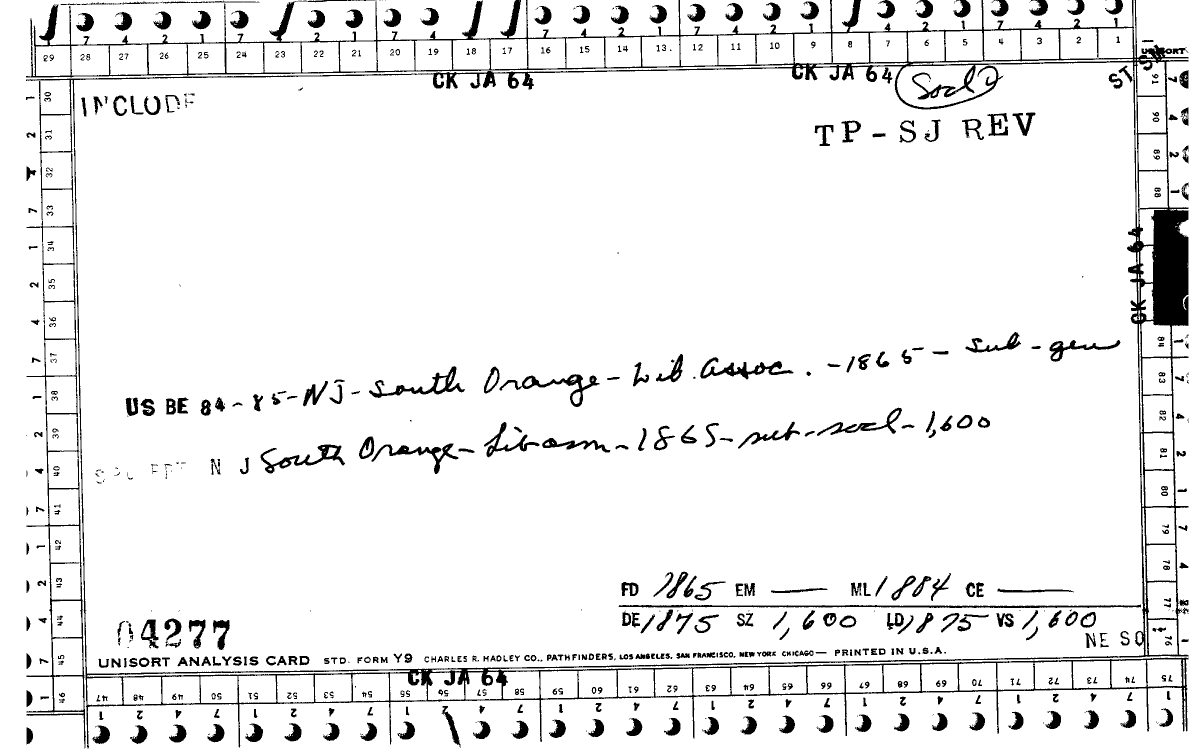 7 4 2 1 7 2 1 7 4 7 4 2 1 7 4 2 1 7 4 2 1
29 28 27 26 25 24 23 22 21 20 19 18 17 16 15 14 13. 12 11 10 9 8 7 6 5 4 3 2 1
CK JA 64 CK JA 64 Socl
INCLUDE
TP-SJ REV
30 31 32 33 34 35 36 37 38 39 40 41 42 43 44 45 46
CK JA 64
91 90 89 88 84 83 82 81 80 79 78 77 76
US BE 84-85-NJ-South Orange-Lib. Assoc. -1865- sub-gen
N J South Orange-Lib assn-1865-sub-socl-1,600
FD 1865 EM — ML 1884 CE —
DE 1875 SZ 1,600 LD 1875 VS 1,600
04277
NE SO
UNISORT ANALYSIS CARD STD. FORM Y9 CHARLES R. HADLEY CO., PATHFINDERS, LOS ANGELES, SAN FRANCISCO, NEW YORK CHICAGO— PRINTED IN U.S.A.
CK JA 64
47 48 49 50 51 52 53 54 55 56 57 58 59 60 61 62 63 64 65 66 67 68 69 70 71 72 73 74 75